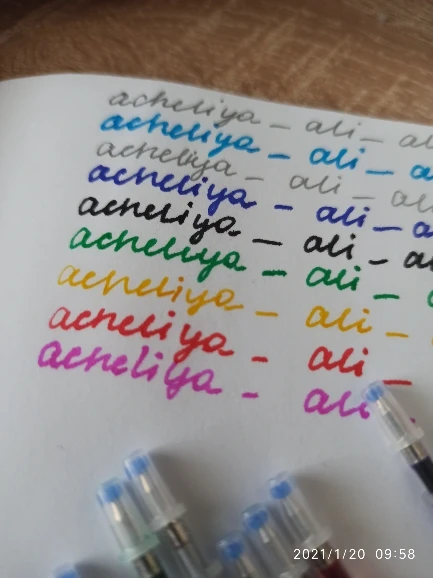 acheliya - ali - al
acheliya - ali - a
acheliya - ali - al
acheliya - ali - a
acheliya - ali - al
acheliya - ali -
acheliya - ali -
acheliya - ali -
acheliya - ali
2021/1/20 09:58